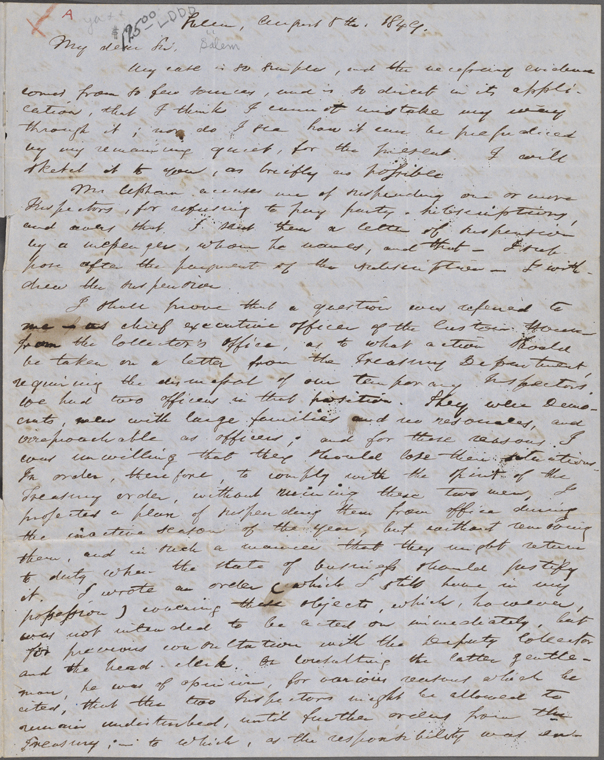 A
$195.00 LDDD
Salem, August 8th. 1849.
Salem
My dear Sir.
My case is so simple, and the necessary evidence
comes from so few sources, and is so direct in its appli-
cation, that I think I cannot mistake my way
through it; nor do I see how it can be prejudiced
by my remaining quiet, for the present. I will
sketch it to you, as briefly as possible
Mr. Upham accuses me of suspending one or more
Inspectors, for refusing to pay party-subscriptions,
and avers that I sent them a letter of suspension
by a messenger, whom he names, and that - I sup
pose after the payment of the subscription - I with-
drew the suspension.
I shall prove that a question was referred to
me - as chief executive officer of the Custom House
from the Collector's office, as to what action should
be taken on a letter from the Treasury Department,
requiring the dismissal of our temporary Inspectors.
We had two officers in that position. They were Demo-
crats, men with large families and no resources, and
irreproachable as officers; and for those reasons I
was unwilling that they should lose their situations.
In order, therefore, to comply with the spirit of the
Treasury order, without ruining these two men, I
projected a plan of suspending them from office during
the inactive season of the year, but without removing
them, and in such a manner that they might return
to duty when the state of business should justify
it. I wrote an order (which I still have in my
possession) covering these objects, which, however,
was not intended to be acted on immediately, but
for previous consultation with the Deputy Collector
and the head-clerk. On consulting the latter gentle-
man, he was of opinion, for various reasons which he
cited, that the two Inspectors might be allowed to
remain undisturbed, until further orders from the
Treasury; - to which, as the responsibility was en-